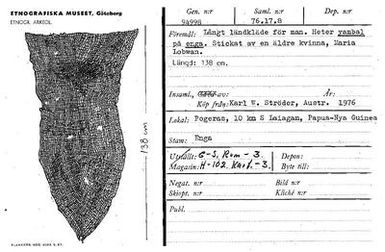 ETNOGRAFISKA MUSEET, Göteborg
ETNOGR. ARKEOL.
138 cm
Gen. nr
Saml. nr
Dep. nr
94998
76.17.8
Föremål: Långt ländkläde för man. Heter yambal
på enga. Stickat av en äldre kvinna, Maria
Lobwan.
Längd: 138 cm.
Insaml. av:
År:
Köp från: Karl E. Ströder, Austr. 1976
Lokal: Pogeras, 10 km S Laiagan, Papua-Nya Guinea
Stam: Enga
Utställt: G-S. Rum - 3.
Depon:
Magasin: H-102. - 3.
Byte till:
Negat. nr
Bild nr
Skiopt. nr
Kliché nr
Publ.